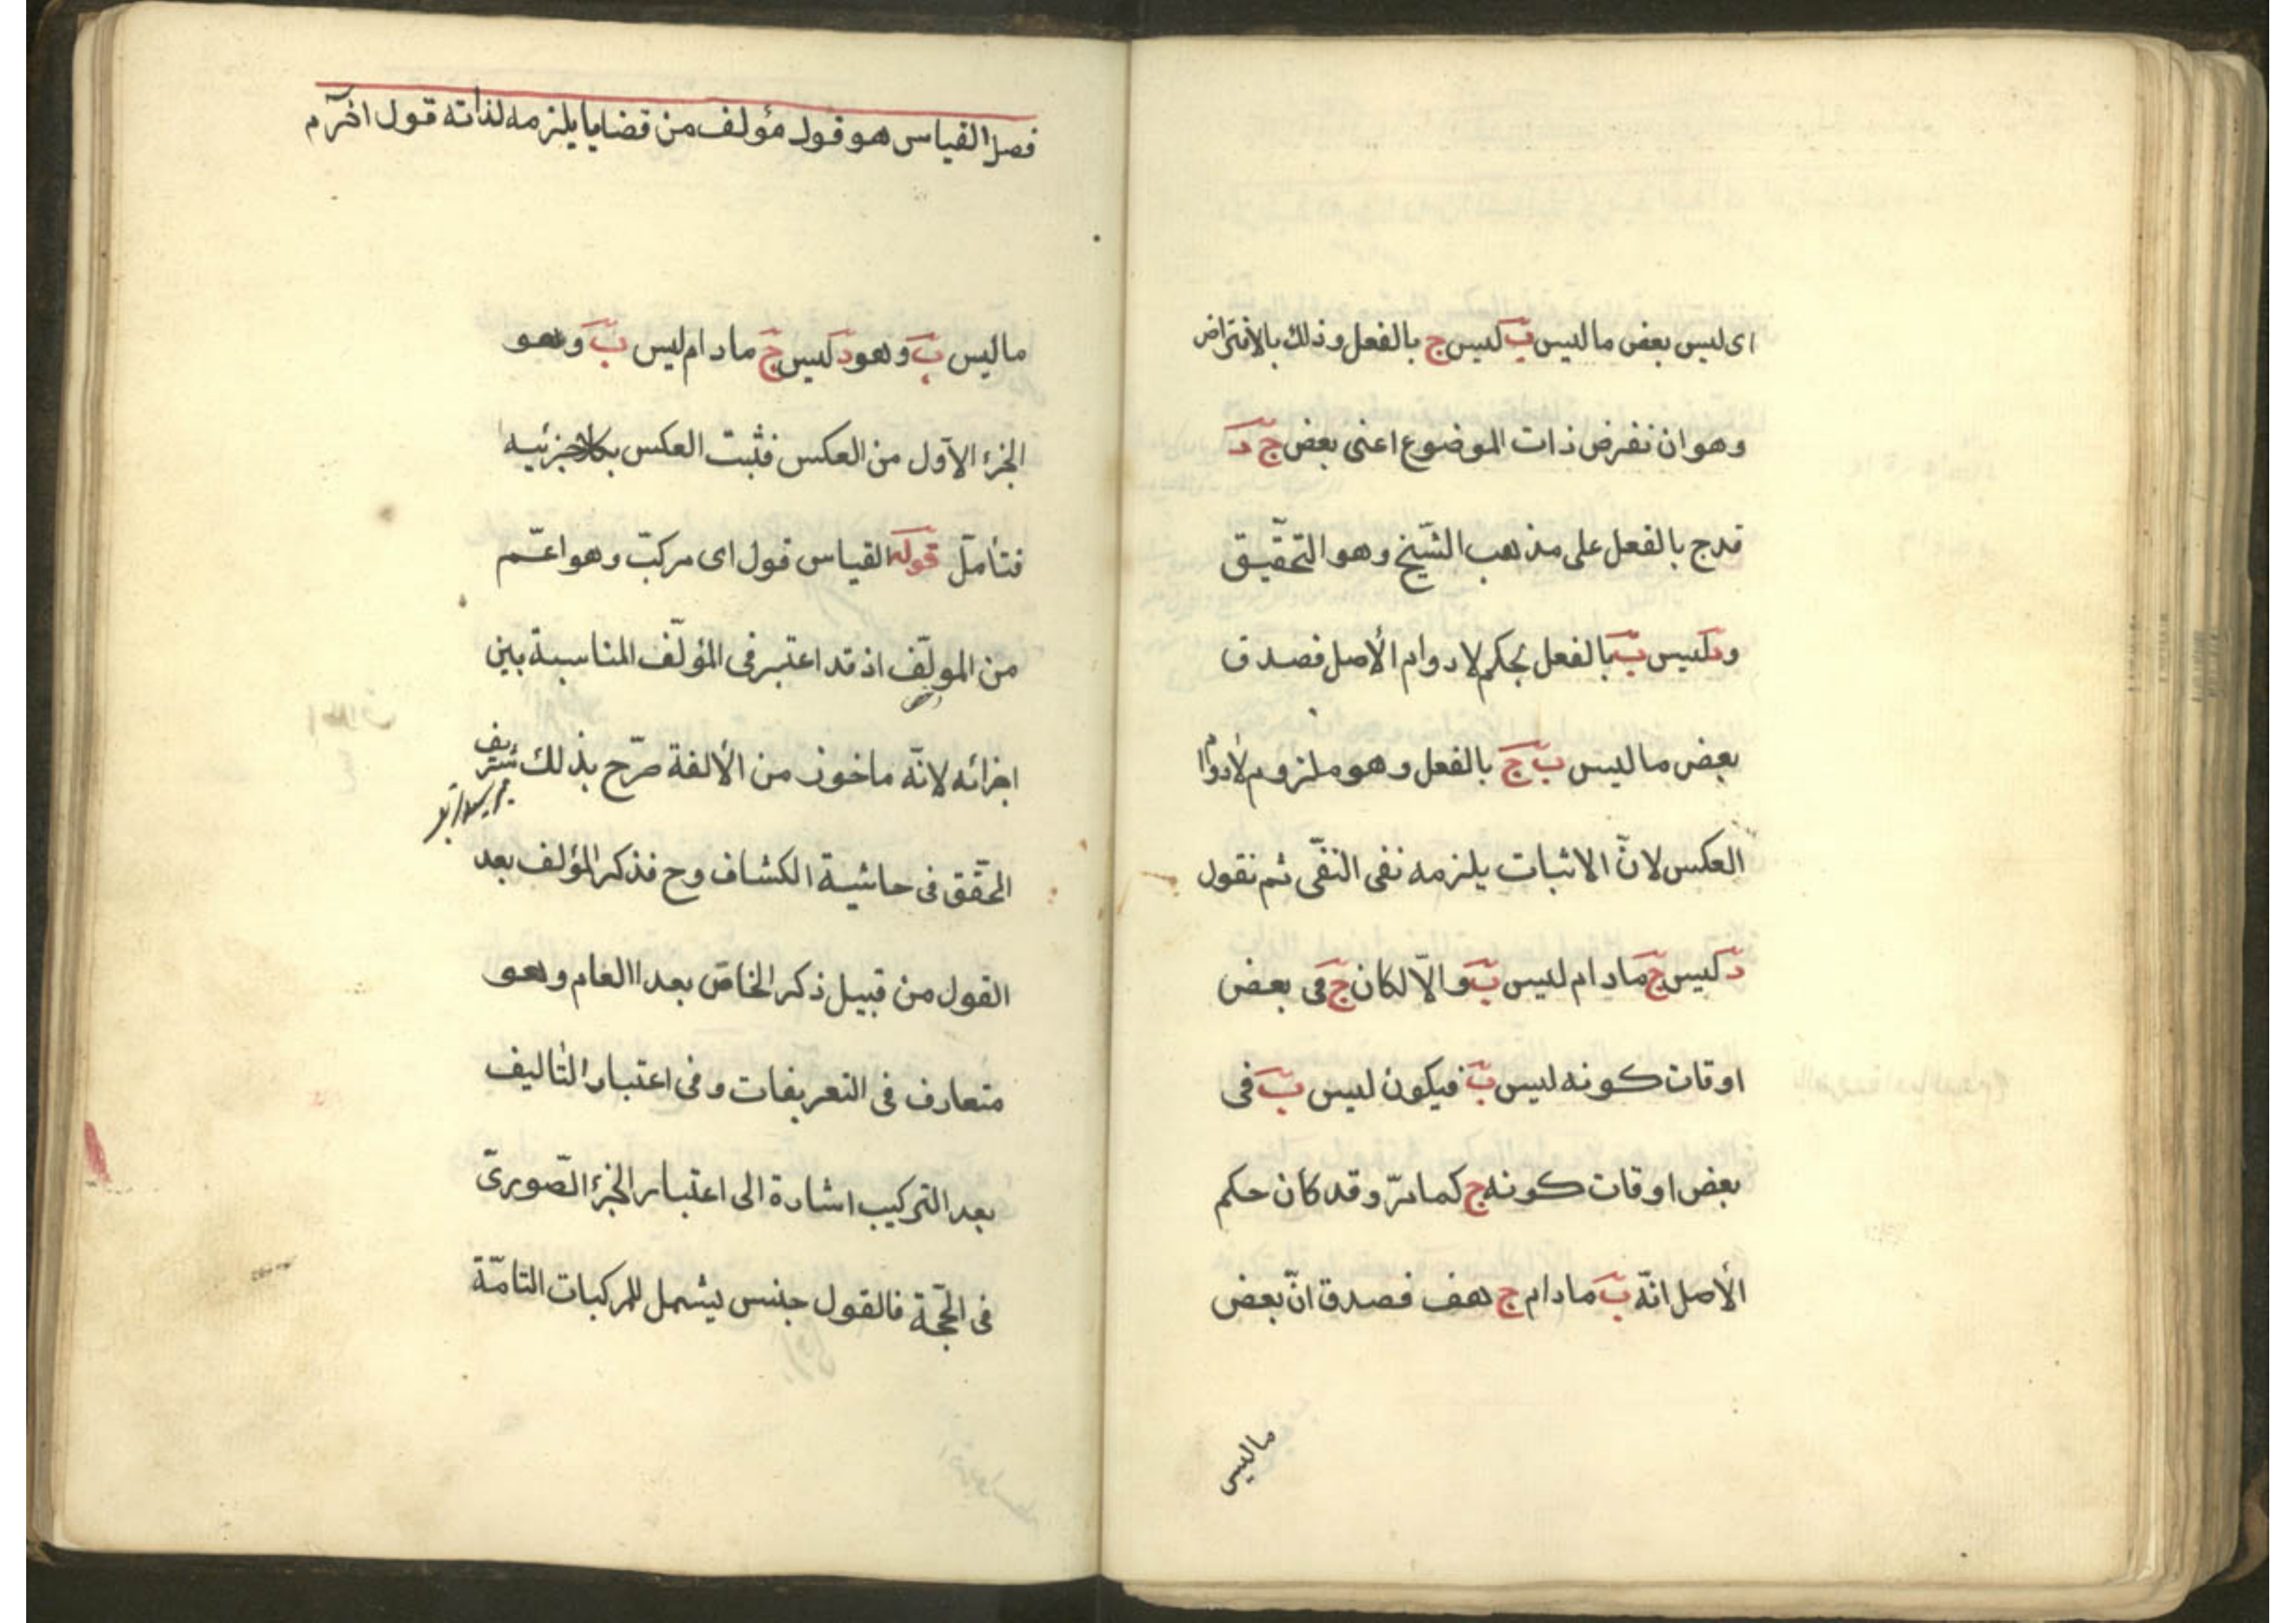 اى ليس بعض ما ليس ب ليس ج بالفعل وذلك بالافتراض
وهو ان نفرض ذات الموضوع اعنى بعض ج د
فدج بالفعل على مذهب الشيخ وهو التحقيق
ود ليس ب بالفعل بحكم لا دوام الأصل فصدق
بعض ما ليس ب ج بالفعل وهو ملزوم لادوام
العكس لانّ الاثبات يلزمه نفى النفى ثم نقول
د ليس ج مادام ليس ب والّا لكان ج فى بعض
اوقات كونه ليس ب فيكون ليس ب فى
بعض اوقات كونه ج كما مرّ وقد كان حكم
الأصل انّه ب مادام ج هف فصدق انّ بعض
ما ليس
فصل القياس هو قول مؤلف من قضايا يلزمه لذاته قول اخر آم
ما ليس ب وهو د ليس ج مادام ليس ب وهو
الجزء الاول من العكس فثبت العكس بكلا جزئيه
فتأمّل قوله القياس قول اى مركب وهو اعمّ
من المولّف اذ قد اعتبر فى المؤلّف المناسبة بين
اجزائه لانّه ماخوذ من الألفة صرّح بذلك شريف
المحقّق فى حاشية الكشاف وح فذكر المؤلف بعد
القول من قبيل ذكر الخاصّ بعد االعام وهو
متعارف فى التعريفات وفى اعتبار التأليف
بعد التركيب اشارة الى اعتبار الجزء الصّورىّ
فى الحجّة فالقول جنس يشمل المركبات التامّة